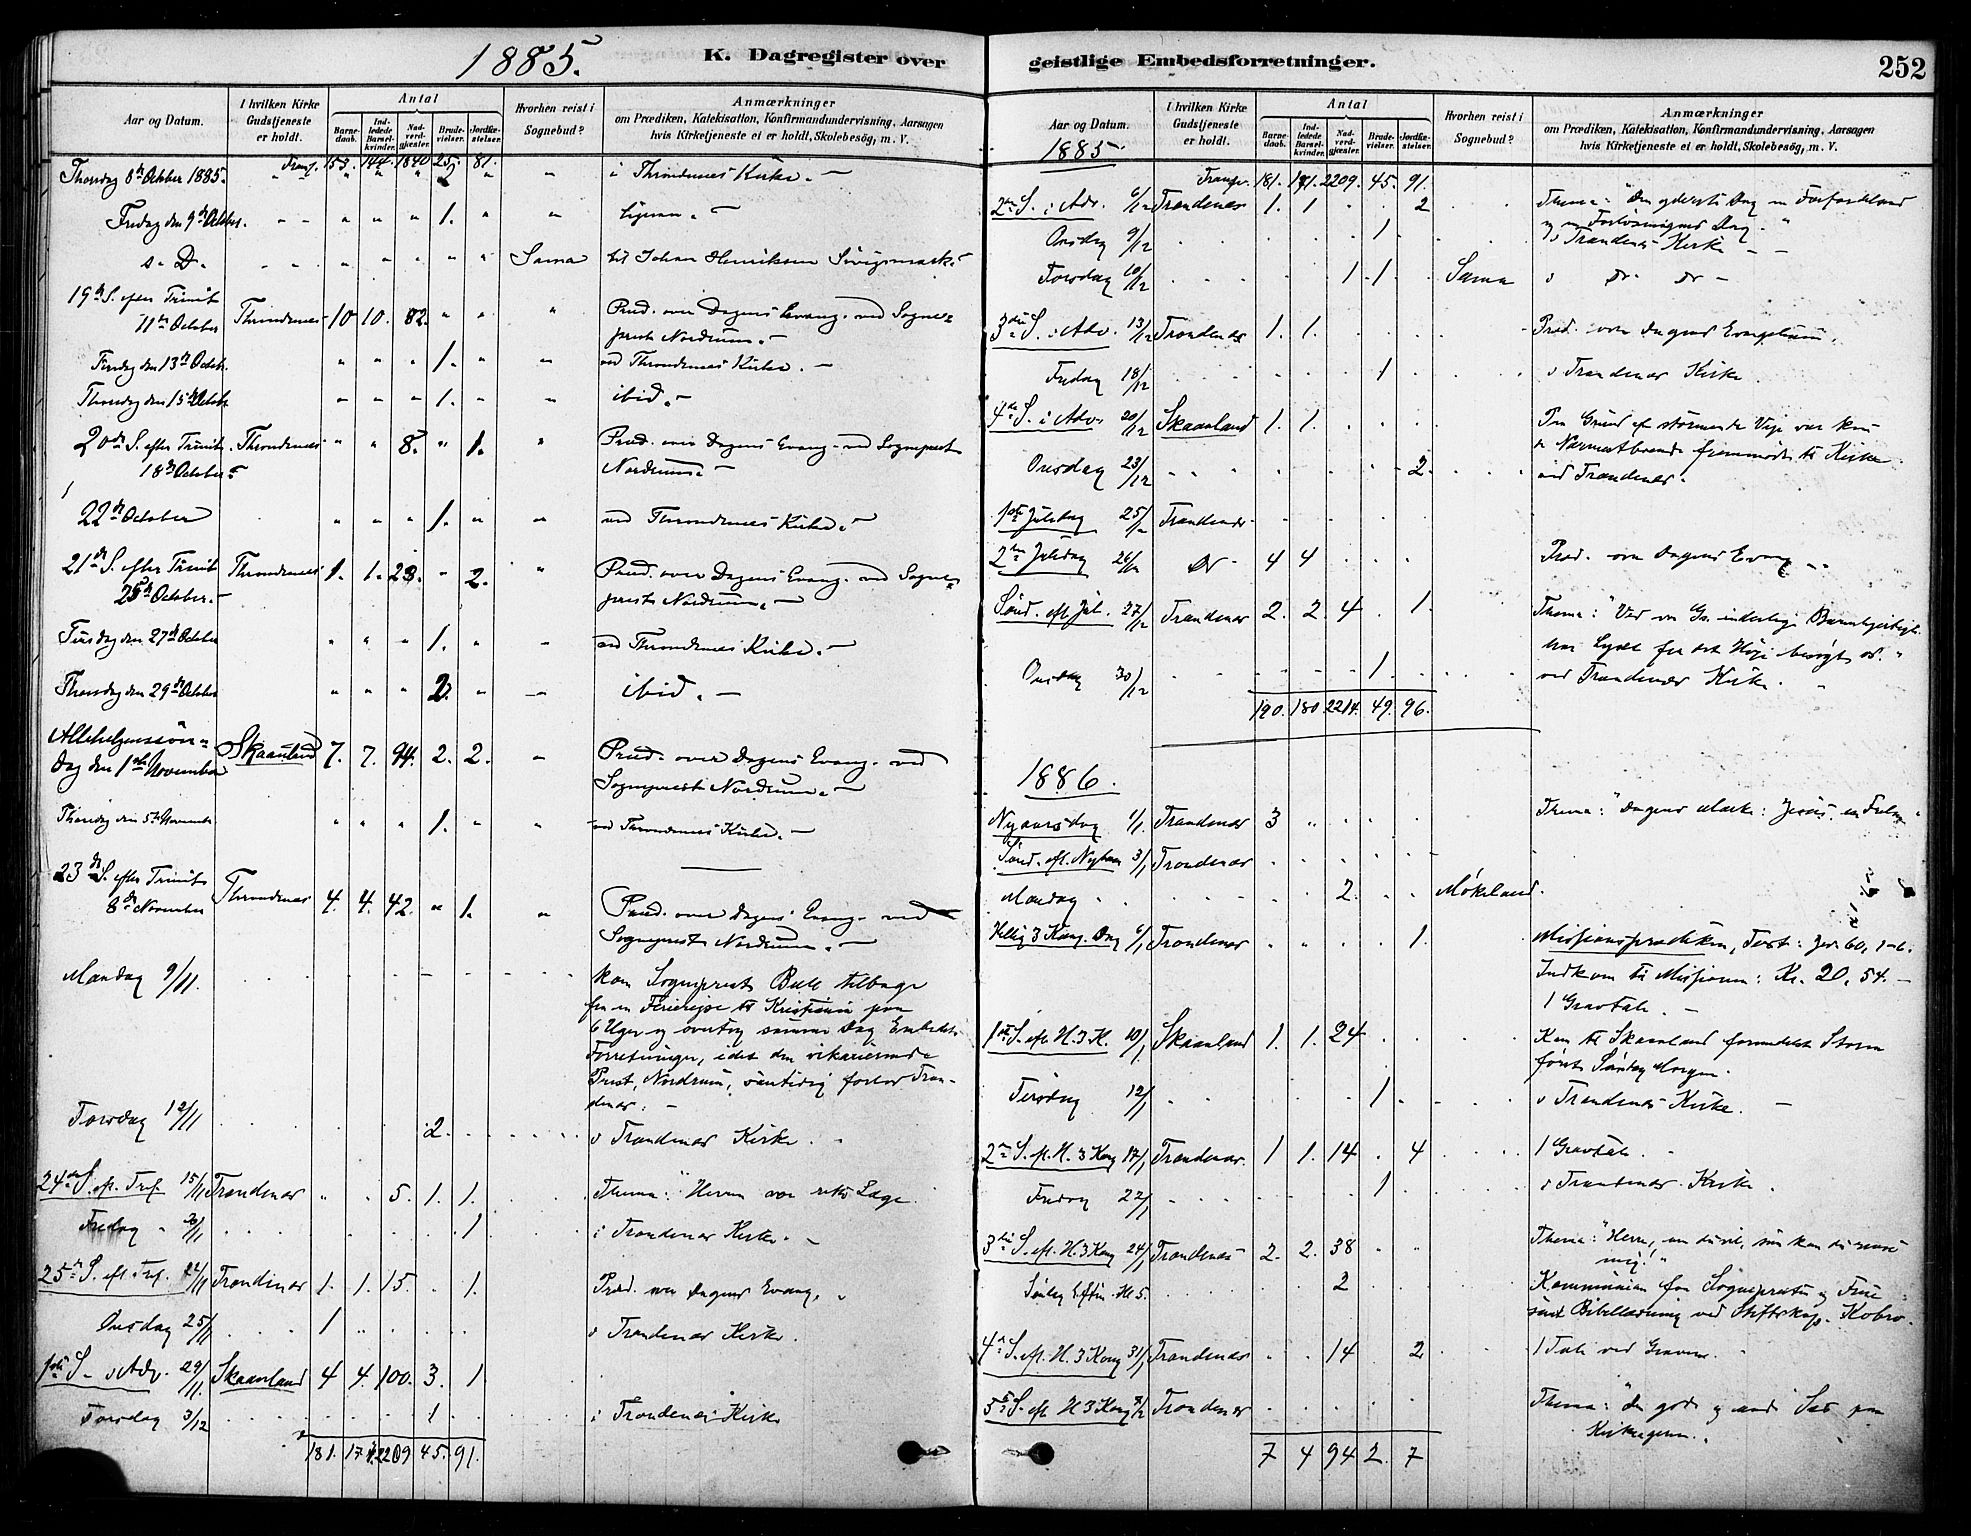 1885.
K. Dagregister over
Aar og Datum.
I hvilken Kirke Gudstjeneste er holdt.
Antal
Barnedaab.
Indledede Barselkvinder.
Nadverdgjæster.
Brudevielser.
Jordfæstelser.
Hvorhen reist i Sognebud?
Anmærkninger
om Prædiken, Katekisation, Konfirmandundervisning, Aarsagen
hvis Kirketjeneste ei er holdt, Skolebesög, m. V.
Transp. 153. 144. 1840 25. 81.
Thorsdag 8de October 1885. " " " " " " i Throndenes Kirke. —
Fredag den 9de Octobr. " " " 1. " " —
s. D. " " " " " Sama til Johan Henriksen
19de S. efter Trinit.
11te October Throndenes 10 10. 82. " " " Præd. over Dagens Evang. ved Sogne-
prest Nordrum. —
Tirsdag den 13de Octobr. " " " 1. " " ved Throndenes Kirke. —
Thorsdag den 15de Octobr " " " 1. " " ibid. —
20de S. efter Trinit. Throndenes " " 8. " 1. " Præd. over Dagens Evang. ved Sogneprest
18de October — Nordrum. —
22de October " " " 1. " " ved Throndenes Kirke. —
21de S. efter Trinit. Throndenes 1. 1. 23. " 2. " Præd. over Dagens Evang. ved Sogne-
25de October. — prest Nordrum. —
Tirsdag den 27de October " " " 1. " " ved Throndenes Kirke. —
Thorsdag den 29de October " " " 2. " " ibid. —
Allehelgenssön-
dag den 1ste November Skaanland 7. 7. 94. 2. 2. " Præd. over Dagens Evang. ved
Sogneprest Nordrum. —
Thorsdag den 5te November " " " 1. " " ved Throndenes Kirke. —
23de S. efter Trinit.
8de November Throndenes 4. 4. 42. " 1. " Præd. over Dagens Evang. ved
Sogneprest Nordrum. —
Mandag 9/11. kom Sogneprest Bull tilbage
fra en Feriereise til Kristiania paa
6 Uger og overtog samme Dag Embeds-
Forretninger, idet den vikarierende
Prest, Nordrum, samtidig forlod Tron-
denes. —
Torsdag 12/11 2. v Trondenes Kirke.
24de S. ef. Tref. 15/11 Trondenes " " 5. 1. 1. Thema: Herren vor rette Læge.
Fredag 20/11 1 i Trondenes Kirke. —
25de S. ef. Tref. 22/11 Trondenes 1. 1. 15. . 1. Præd. over Dagens Evang.
Onsdag 25/11 1 v Trondenes Kirke.
1ste S. i Adv. 29/11. Skaanland 4 4. 100. 3. 1.
Torsdag 3/12 1 i Trondenes Kirke
181. 171. 2209 45. 91.
geistlige Embedsforretninger.
252
Aar og Datum.
1885.
I hvilken Kirke Gudstjeneste er holdt.
Antal
Barnedaab.
Indledede Barselkvinder.
Nadverdgjæster.
Brudevielser.
Jordfæstelser.
Hvorhen reist i Sognebud?
Anmærkninger
om Prædiken, Katekisation, Konfirmandundervisning, Aarsagen
hvis Kirketjeneste ei er holdt, Skolebesög, m. V.
Transp. 181. 171. 2209. 45. 91.
2den S. i Adv. 6/12 Trondenes 1. 1 . . 2 Thema: "Den yderste Dag en Forfærdelses
og en Forløsningens Dag."
Onsdag 9/12 1 v Trondenes Kirke —
Torsdag 10/12 1 1. Sama v Do Do —
3die S. i Adv. 13/12 Trondenes 1. 1. Præd. over Dagens Evangelium.
Fredag 18/12 1 v Trondenes Kirke.
4de S. i Adv. 20/12 Skaanland 1. 1. Paa Grund af stormende Veir var kun
de Nærmestboende fremmødte til Kirke.
Onsdag 23/12 2. ved Trondenes.
1ste Juledag 25/12 Trondenes
2den Juledag 26/12 Do 4 4 Præd. over Dagens Evang.
Sönd. eft. Jul. 27/12 Trondenes 2. 2. 4 . 1. Thema: "Ved vor Gs. inderlige Barmhjertigh.
har Lyset fra det Høje besøgt os."
Onsdag 30/12 1. ved Trondenes Kirke.
190. 180 2214. 49. 96.
1886.
Nyaarsdag 1/1 Trondenes 3 Thema: "Dagens Mærke: Jesus, en Frelser"
Sönd. ef. Nytaar 3/1 Trondenes
Mandag 2. Møkeland.
Hellig 3 Kong. Dag 6/1 Trondenes 1. Missionsprædiken, Text: Jes. 60, 1-6.
Indkom til Missionen: Kr. 20, 54. —
1 Gravtale. —
1ste S. ef. H. 3 K. 10/1 Skaanland 1. 1. 24 Kom til Skaanland formedelst Storm
først Søndag Morgen.
Tirsdag 12/1 1 v Trondenes Kirke. —
2den S. ef. H. 3 Kong 17/1 Trondenes. 1 1. 14 . 4 1 Gravtale.
Fredag 22/1 1 v Trondenes Kirke.
3die S. ef. H. 3 Kong 24/1 Trondenes 2. 2. 38 Thema: "Herre, om du vil, saa kan du rense
mig!"
Söndag Eftm. Kl 5. 2 Kommunion for Sogneprest og Frue
samt Bibellæsning ved Stiftskap. Kobro.
4de S. ef. H. 3 Kong 31/1 Trondenes . . 14 . 2 1 Tale ved Graven.
5te S. ef. H 3 Kong 7/2 Trondenes Thema: "Den gode og onde Sæd paa
Kirkeageren".
7 4 94 2. 7